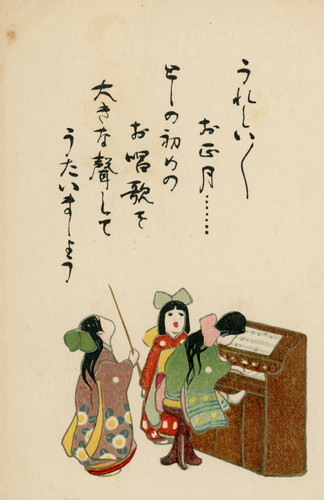 うれしい〳〵
お正月……
としの初めの
お唱歌を
大きな聲して
うたいましよう